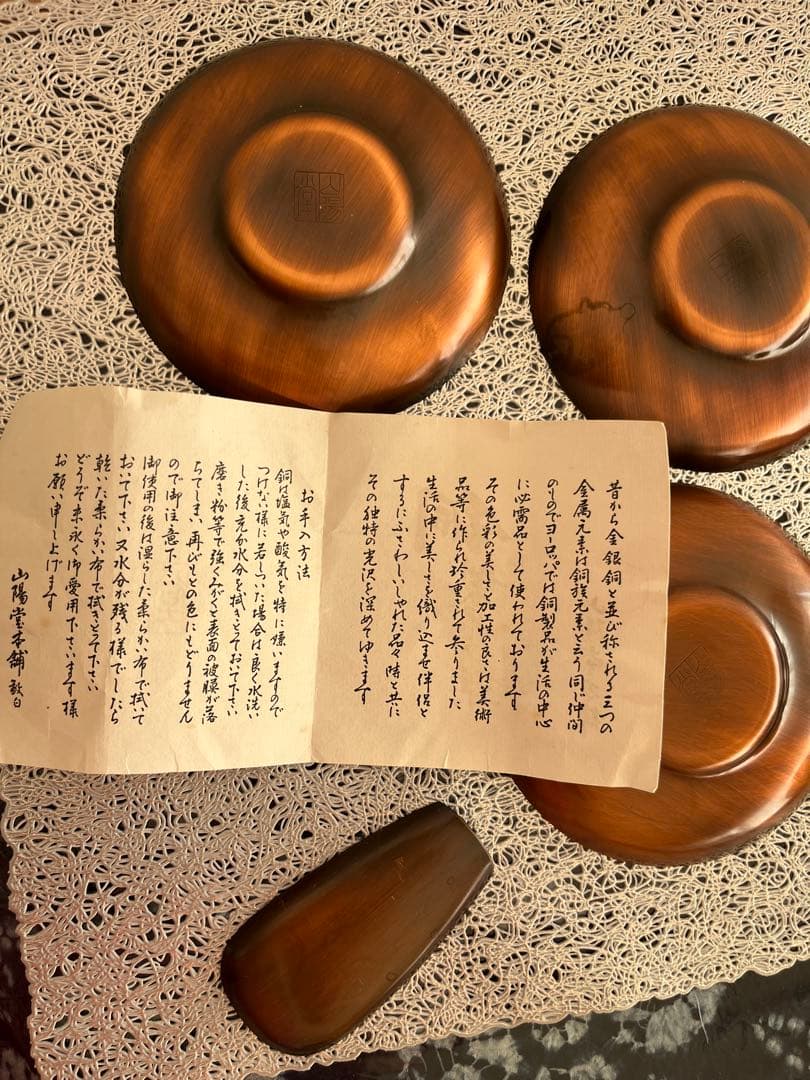 昔から金銀銅と並び称される三つの
金属元素は銅族元素と云う同じ仲間
のものでヨーロッパでは銅製品が生活の中心
に必需品として使われております
その色彩の美しさと加工性の良さは美術
品等に作られ珍重されて参りました
生活の中に美しさを織り込ませ伴侶と
するにふさわしいしゃれた品々 時と共に
その独特の光沢を深めてゆきます
お手入方法
銅は塩気や酸気を特に嫌いますので
つけない様に若しついた場合は良く水洗い
した後充分水分を拭きとっておいて下さい
磨き粉等で強くみがくと表面の被膜が落
ちてしまい再びもとの色にもどりません
ので御注意下さい
御使用の後は湿らした柔らかい布で拭いて
おいて下さい又水分が残る様でしたら
乾いた柔らかい布で拭きとって下さい
どうぞ末永く御愛用下さいます様
お願い申し上げます
山陽堂本舗 敬白
山陽
堂